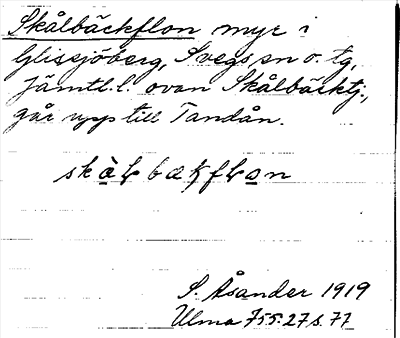 Skålbäckflon myr i
Glissjöberg, Svegs sn o. tg,
Jämtl. l. ovan Skålbäcktj.,
går upp till Tandån.
S. Åsander 1919
Ulma 755:27 s. 77